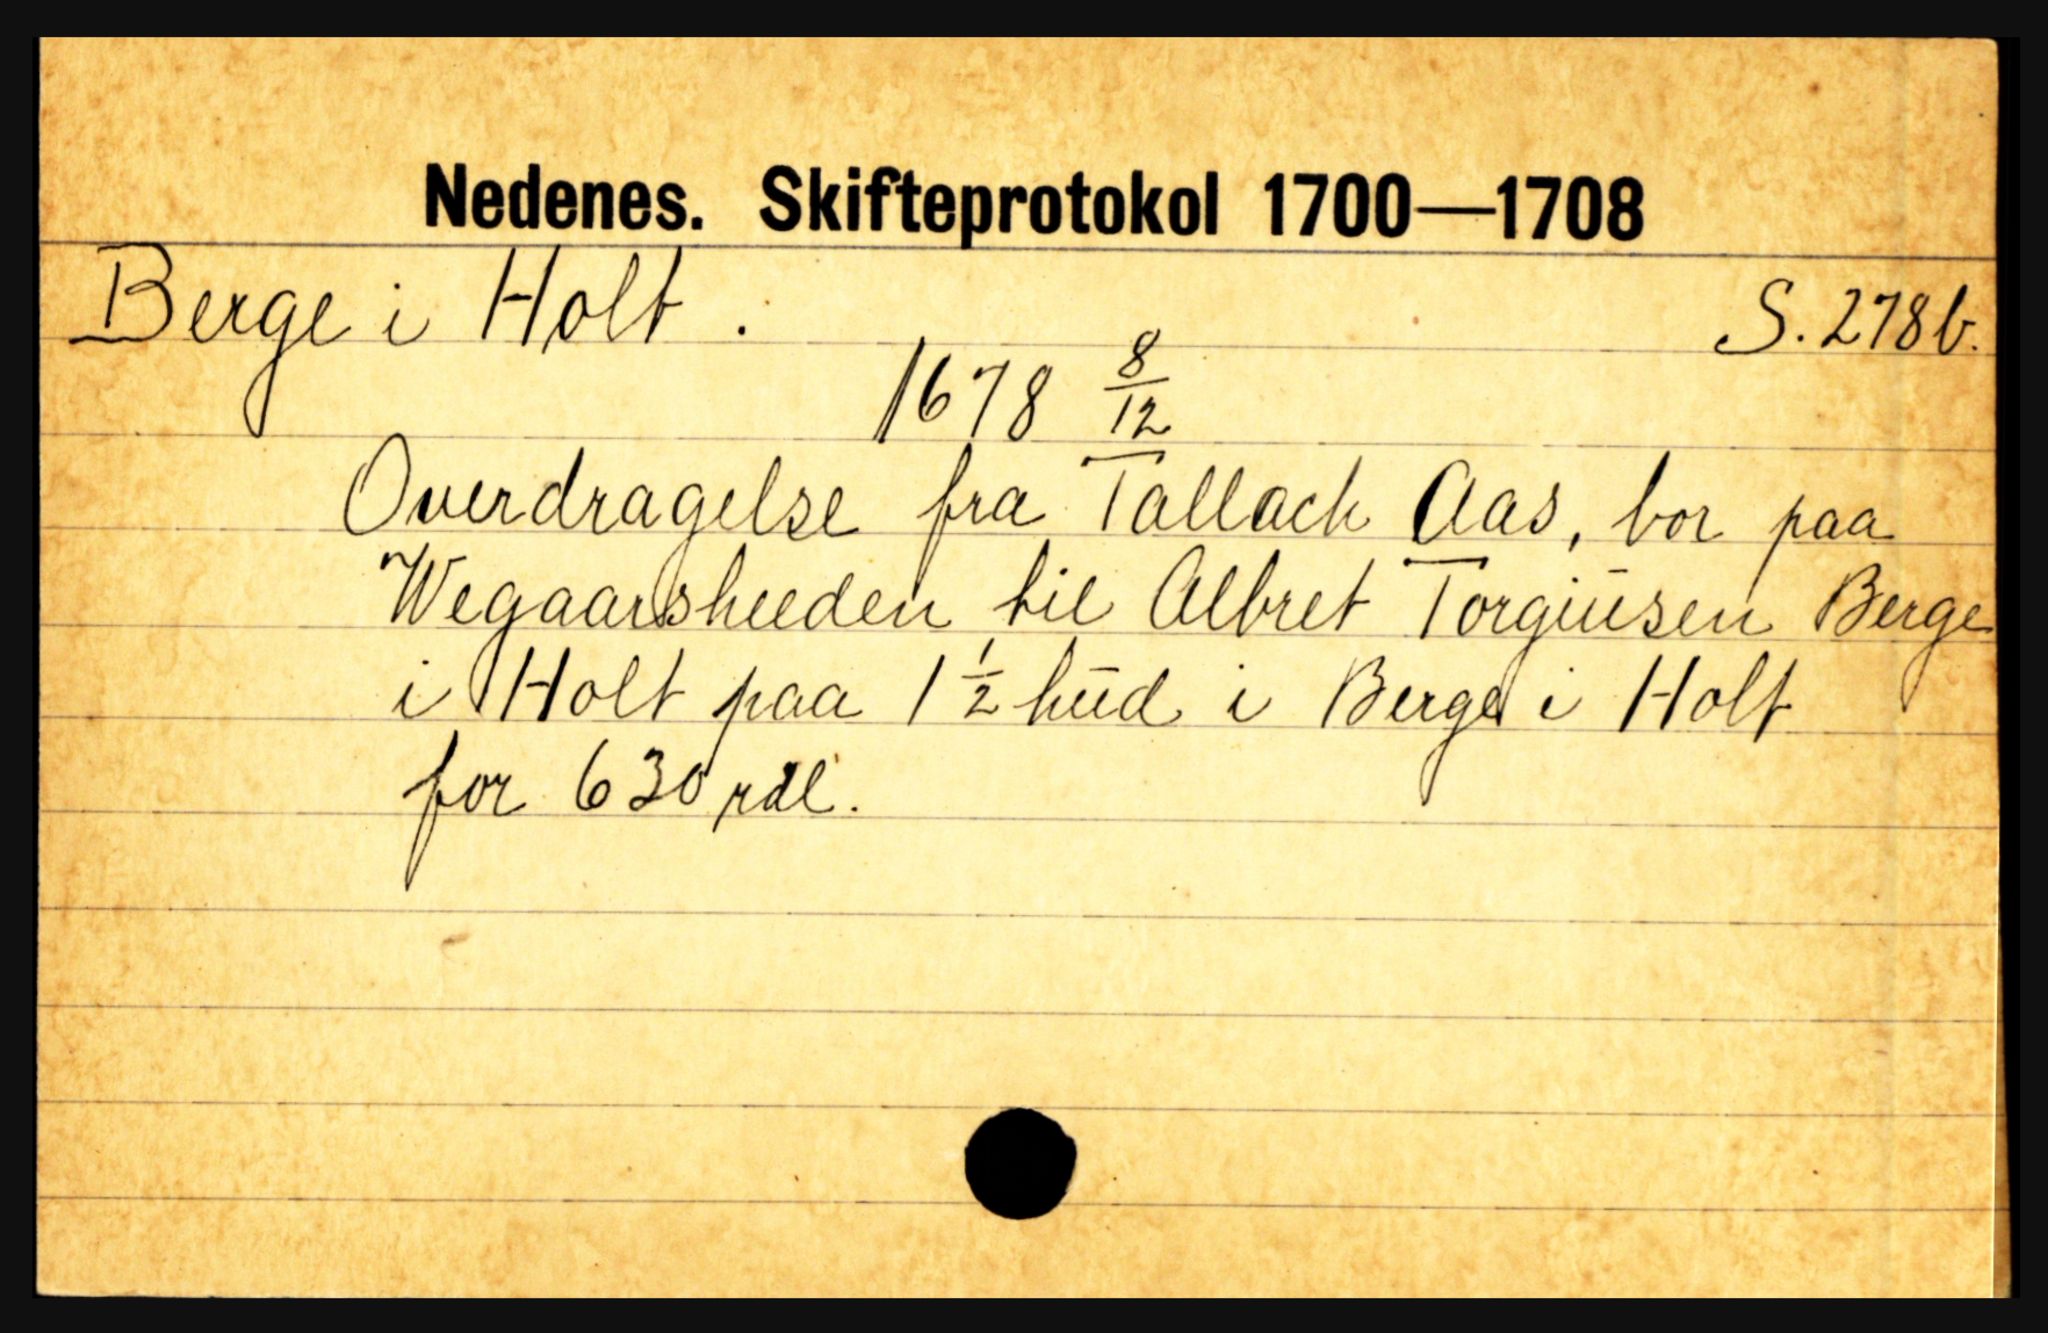 Nedenes. Skifteprotokol 1700—1708
Berge i Holt. S. 278b.
1678 8/12
Overdragelse fra Tallach Aas, bor paa
Wegaarsheeden til Albret Torgiusen Berge
i Holt paa 1 1/2 hud i Berge i Holt
for 630 rdl.